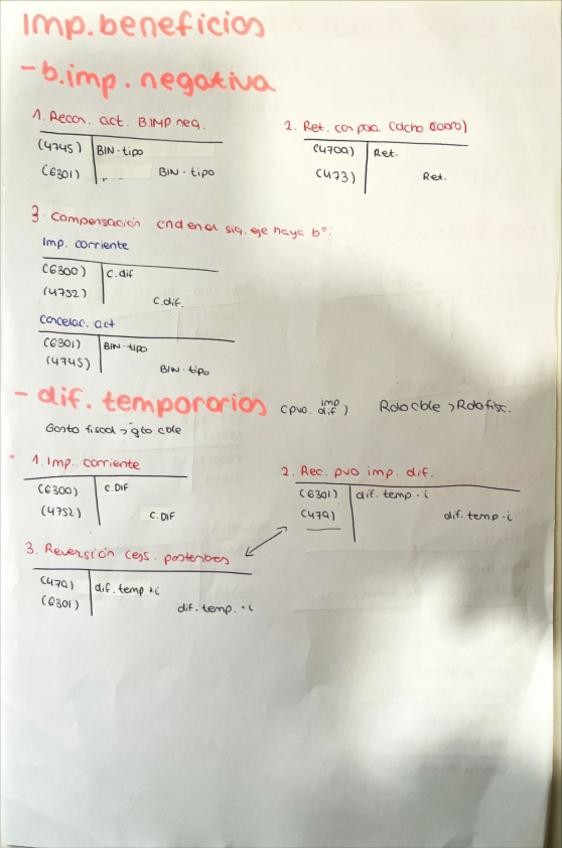 Imp. beneficios
- b. imp. negativa
1. Recon. act. B.IMP. neg.
(4745) BIN · tipo
(6301) BIN · tipo
2. Ret. con posi. (dcho cobro)
(4709) Ret.
(473) Ret.
3. Compensación cnd en el sig. eje haya bº:
Imp. corriente
(6300) c.dif
(4752) c.dif.
Cancelac. act
(6301) BIN · tipo
(4745) BIN · tipo
- dif. temporarias (pvo. imp dif) Rdo cble > Rdo fisc.
Gasto fiscal > gto cble
1. Imp. corriente
(6300) C.DIF
(4752) C.DIF
2. Rec. pvo imp. dif.
(6301) dif. temp · i
(479) dif. temp · i
3. Reversión ejs. posteriores
(479) dif. temp · i
(6301) dif. temp. · i